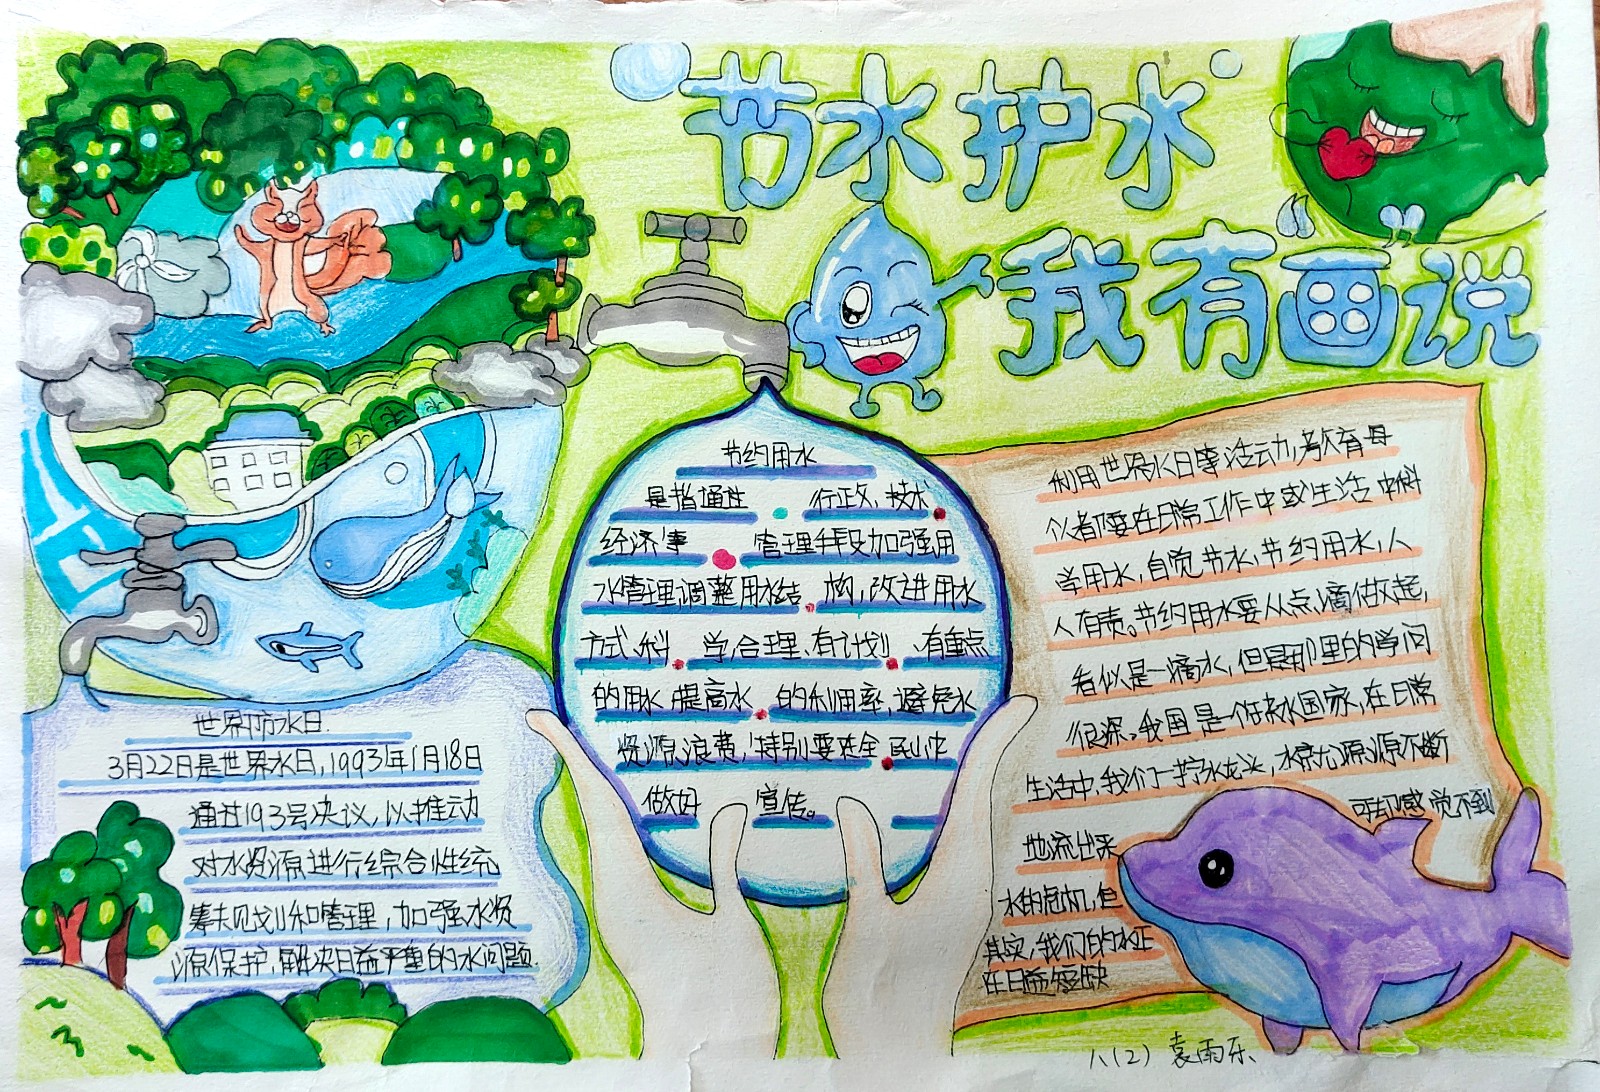 节水护水
我有画说
节约用水
是指通过 行政、技术
经济等 管理手段加强用
水管理,调整用水结 构,改进用水
方式、科 学、合理、有计划 、有重点
的用水 提高水 的利用率,避免水
资源浪费,特别要
做好 宣传。
世界防水日.
3月22日是世界水日,1993年1月18日
通过193号决议,以推动
对水资源进行综合性统
筹规划和管理,加强水资
源保护,解决日益严重的水问题.
利用世界水日等活动,教育
在日常工作中或生活中科
学用水,自觉节水,节约用水,人
人有责。节约用水要从点滴做起,
看似是一滴水,但是那里的学问
很深。我国是一个缺水国家,在日常
生活中,我们一拧水龙头,水就源源不断
地流出来
可能感觉不到
水的危机,但
其实,我们的水正
在日益短缺
八(2) 袁雨乐